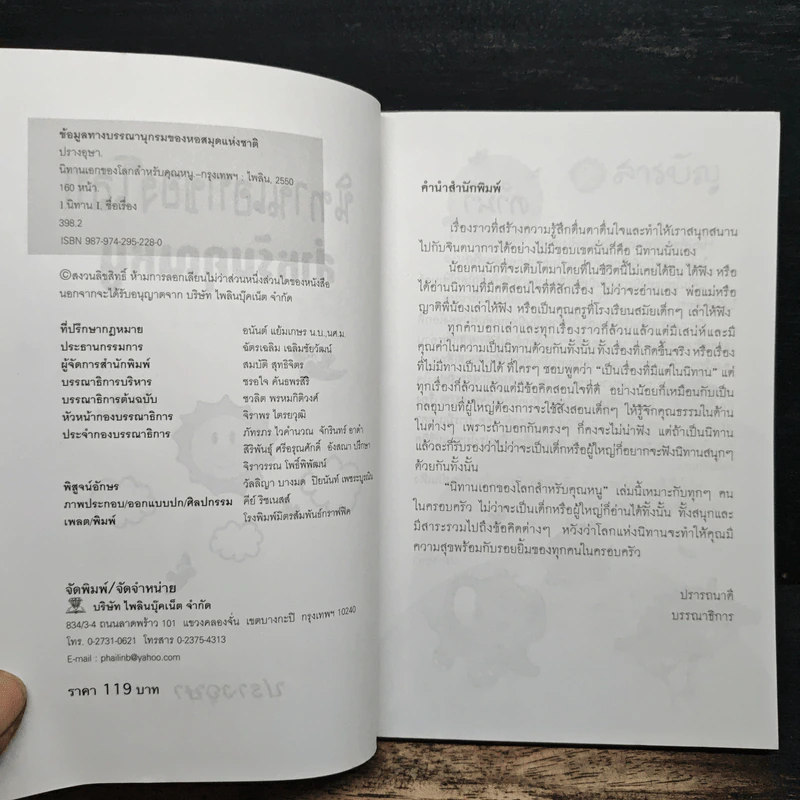 ข้อมูลทางบรรณานุกรมของหอสมุดแห่งชาติ
ปรางอุษา.
นิทานเอกของโลกสำหรับคุณหนู.-กรุงเทพฯ : ไพลิน, 2550
160 หน้า.
1.นิทาน I. ชื่อเรื่อง
398.2
ISBN 987-974-295-228-0
©สงวนลิขสิทธิ์ ห้ามการลอกเลียนไม่ว่าส่วนหนึ่งส่วนใดของหนังสือ
นอกจากจะได้รับอนุญาตจาก บริษัท ไพลินบุ๊คเน็ต จำกัด
ที่ปรึกษากฎหมาย อนันต์ แย้มเกษร น.บ.,นศ.ม.
ประธานกรรมการ ฉัตรเฉลิม เฉลิมชัยวัฒน์
ผู้จัดการสำนักพิมพ์ สมบัติ สุทธิจิตร
บรรณาธิการบริหาร ชรอใจ คันธพรสิริ
บรรณาธิการต้นฉบับ ชวลิต พรหมกิติวงศ์
หัวหน้ากองบรรณาธิการ จิราพร ไตรยวุฒิ
ประจำกองบรรณาธิการ ภัทรภร ไวคำนวณ จักรินทร์ อาด่ำ
สิริพันธุ์ ศรีอรุณศักดิ์ อังสณา ปรึกษา
จิราวรรณ โพธิ์พิพัฒน์
พิสูจน์อักษร วัลลิญา บางมด ปิยนันท์ เพชระบูรณิน
ภาพประกอบ/ออกแบบปก/ศิลปกรรม คีย์ ริชเนสส์
เพลต/พิมพ์ โรงพิมพ์มิตรสัมพันธ์กราฟฟิค
จัดพิมพ์/จัดจำหน่าย
บริษัท ไพลินบุ๊คเน็ต จำกัด
834/3-4 ถนนลาดพร้าว 101 แขวงคลองจั่น เขตบางกะปิ กรุงเทพฯ 10240
โทร. 0-2731-0621 โทรสาร 0-2375-4313
E-mail : phailinb@yahoo.com
ราคา 119 บาท
คำนำสำนักพิมพ์
เรื่องราวที่สร้างความรู้สึกตื่นตาตื่นใจและทำให้เราสนุกสนาน
ไปกับจินตนาการได้อย่างไม่มีขอบเขตนั่นก็คือ นิทานนั่นเอง
น้อยคนนักที่จะเติบโตมาโดยที่ในชีวิตนี้ไม่เคยได้ยิน ได้ฟัง หรือ
ได้อ่านนิทานที่มีคติสอนใจที่ดีสักเรื่อง ไม่ว่าจะอ่านเอง พ่อแม่หรือ
ญาติพี่น้องเล่าให้ฟัง หรือเป็นคุณครูที่โรงเรียนสมัยเด็กๆ เล่าให้ฟัง
ทุกคำบอกเล่าและทุกเรื่องราวก็ล้วนแล้วแต่มีเสน่ห์และมี
คุณค่าในความเป็นนิทานด้วยกันทั้งนั้น ทั้งเรื่องที่เกิดขึ้นจริง หรือเรื่อง
ที่ไม่มีทางเป็นไปได้ ที่ใครๆ ชอบพูดว่า “เป็นเรื่องที่มีแต่ในนิทาน” แต่
ทุกเรื่องก็ล้วนแล้วแต่มีข้อคิดสอนใจที่ดี อย่างน้อยก็เหมือนกับเป็น
กลอุบายที่ผู้ใหญ่ต้องการจะใช้สั่งสอนเด็กๆ ให้รู้จักคุณธรรมในด้าน
ในต่างๆ เพราะถ้าบอกกันตรงๆ ก็คงจะไม่น่าฟัง แต่ถ้าเป็นนิทาน
แล้วละก็รับรองว่าไม่ว่าจะเป็นเด็กหรือผู้ใหญ่ก็อยากจะฟังนิทานสนุกๆ
ด้วยกันทั้งนั้น
“นิทานเอกของโลกสำหรับคุณหนู” เล่มนี้เหมาะกับทุกๆ คน
ในครอบครัว ไม่ว่าจะเป็นเด็กหรือผู้ใหญ่ก็อ่านได้ทั้งนั้น ทั้งสนุกและ
มีสาระรวมไปถึงข้อคิดต่างๆ หวังว่าโลกแห่งนิทานจะทำให้คุณมี
ความสุขพร้อมกับรอยยิ้มของทุกคนในครอบครัว
ปรารถนาดี
บรรณาธิการ